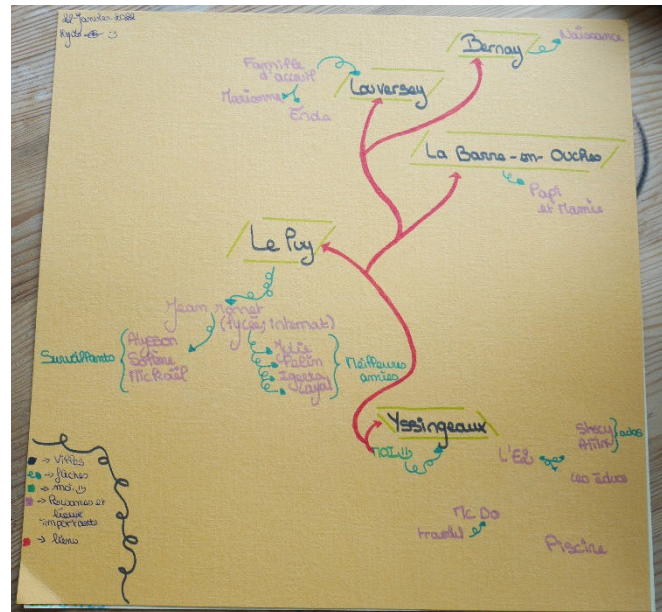 22-Janvier-2022
Bernay
Naissance
Famille
d'acceuil
Louversey
Marianne
Enola
La Barre-en-Ouches
Papi
et Mamie
Le Puy
Jean Monnet
(lycées internat)
Surveillants
Alysson
Solène
Mickaël
Julie
Meilleures
amies
Yssingeaux
MOI
L'E2
Stecy
ados
Les éducs
Mc Do
travail
Piscine
→ Villes
→ flèches
→ moi
→ Personnes et
lieux
importants
→ liens